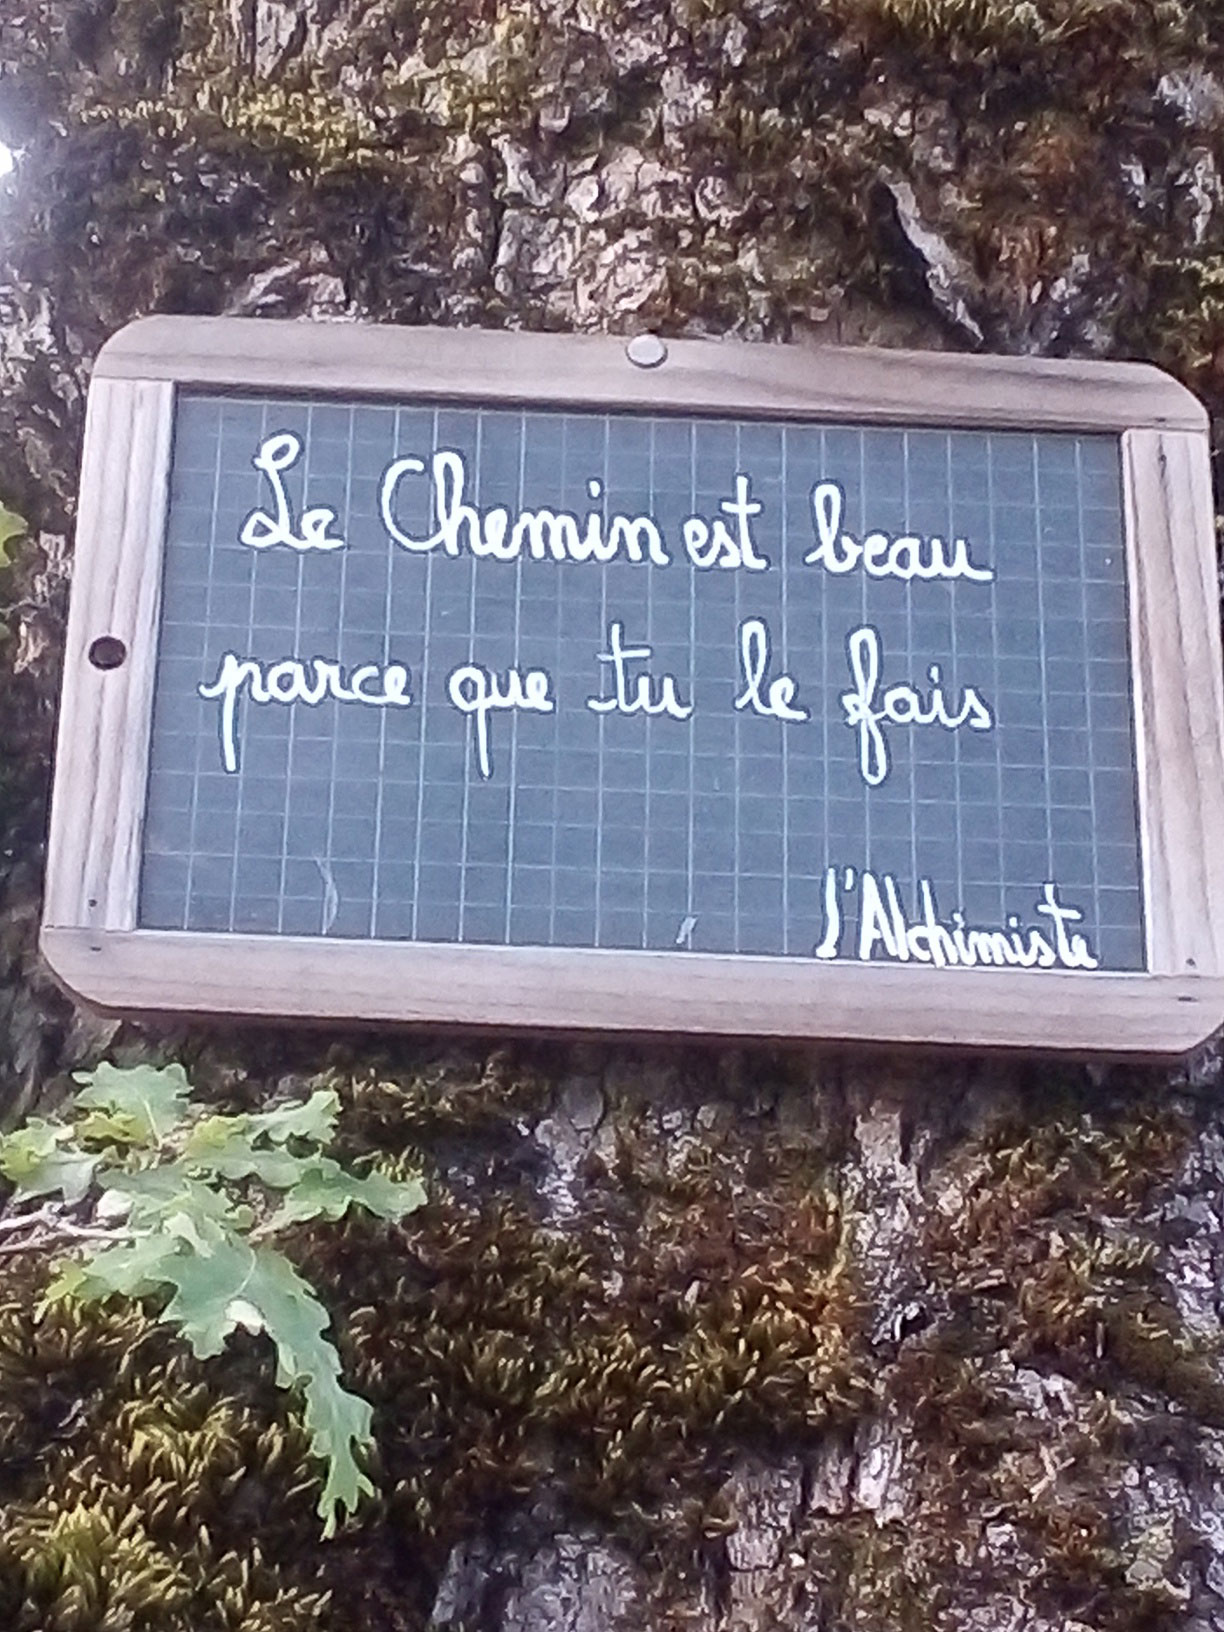 Le Chemin est beau
parce que tu le fais
l'Alchimiste